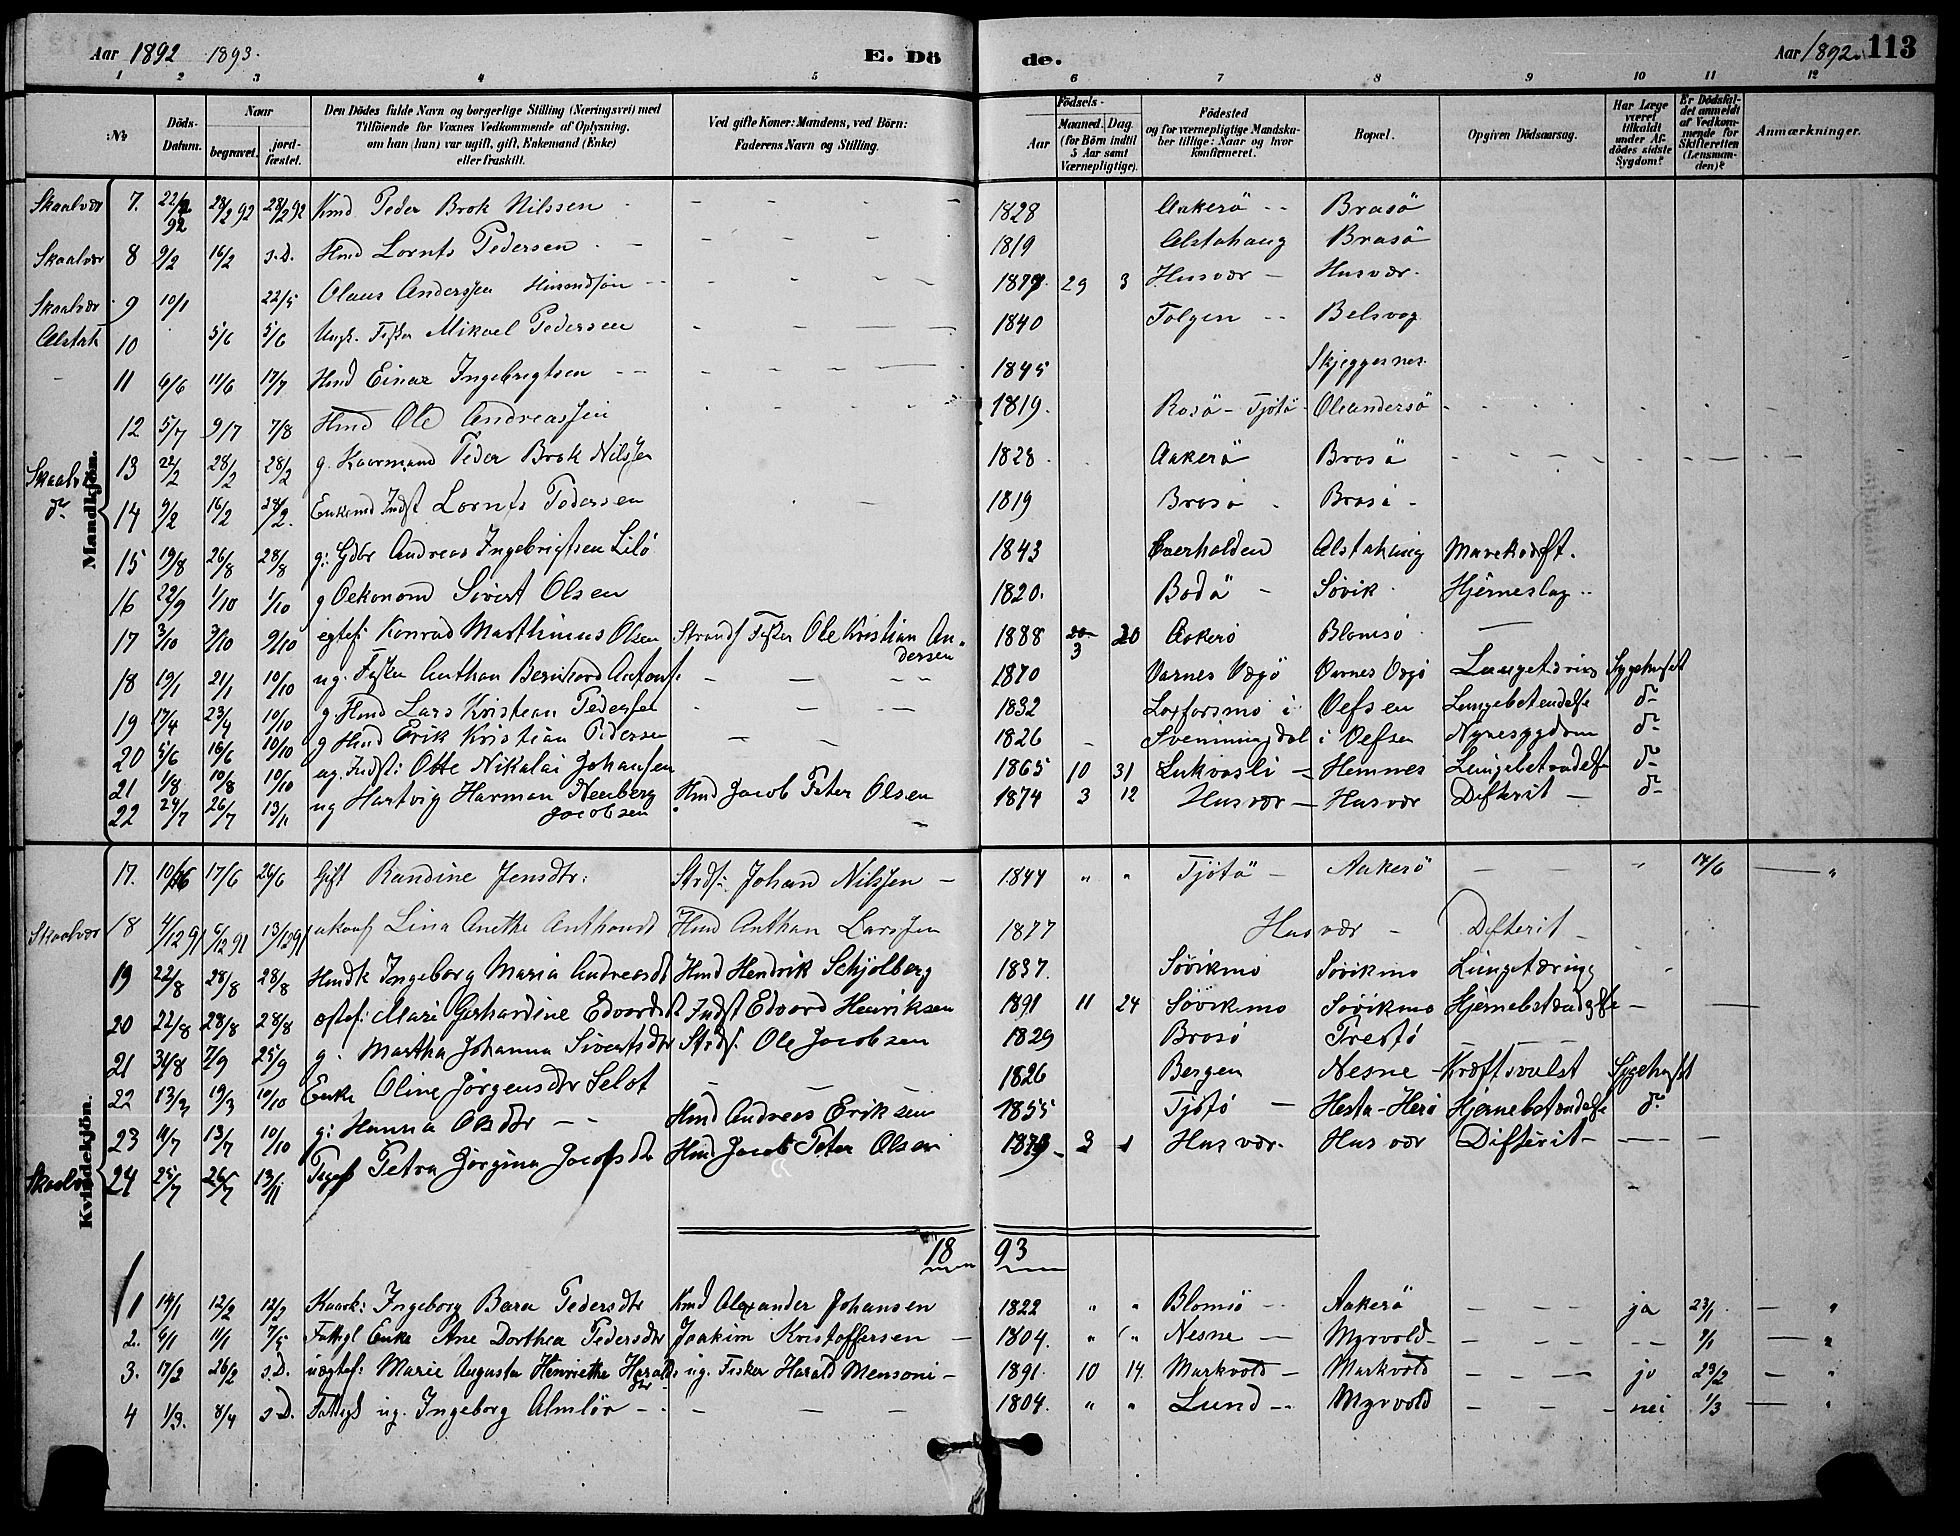 Aar 1892 1893. E. Dö de. Aar 1892. 113
1 2 3 4 5 6 7 8 9 10 11 12
No Döds-Datum. Naar begravet. jord-fæstet. Den Dödes fulde Navn og borgerlige Stilling (Næringsvei) med Tilföiende for Voxnes Vedkommende af Oplysning, om han (hun) var ugift, gift, Enkemand (Enke) eller fraskilt. Ved gifte Koner: Mandens, ved Börn: Faderens Navn og Stilling. Födsels- Aar Maaned. Dag. (for Börn indtil 5 Aar samt Værnepligtige). Födested og for værnepligtige Mandskaber tillige: Naar og hvor konfirmeret. Bopæl. Opgiven Dödsaarsag. Har Læge været tilkaldt under Afdödes sidste Sygdom? Er Dödsfaldet anmeldt af Vedkommende for Skifteretten (Lensmanden)? Anmærkninger.
Mandkjön.
Skaalvær 7. 22/2 92 28/2 92 28/2 92 Kmd Peder Brok Nilssen - 1828 Aakerö -- Brasö
Skaalvær 8 9/2 16/2 s.D. Hmd Lornts Pedersen 1819 Alstahaug Brasö
Skaalvær 9 10/1 22/5 Olaus Anderssen Husmdsön 29 3 Husvær - Husvær.
Alstah 10 5/6 5/6 Ungk. Fisker Mikael Pedersen 1840 -- Belsvog
- 11 6/6 11/6 17/7 Hmd Einar Ingebrigtsen -- 1845 Skjeggesnes.
12 5/7 9/7 7/8 Hmd Ole Andreassen 1819. Rosö - Tjötö - Oleandersö
Skaalvær 13 22/2 28/2 28/2 g. Kaarmand Peder Brok Nilssen 1828 Aakerö Brosö
do 14 9/2 16/2 28/2. Enkemd Indst Lornts Pedersen 1819 Brosö - Brosö -
15 19/8 26/8 28/8 g: Gdbr Andreas Ingebrigtsen Lilö 1843 Overhalden Alstahaug Mavekræft.
16 22/9 1/10 1/10 g Oekonom Sivert Olsen 1820. Bodö - Søvik Hjerneslag
17 3/10 3/10 9/10 egtef: Konrad Marthinius Olsen Strands. Fisker Ole Kristian Andersen 1888 3 20 Aakerö Blomsö -
18 19/1 21/1 10/10 ug. Fisker Anthon Bernhard Antons. 1870 Varnes Vegö Varnes Vegö Lungetæring Sygehuset
19 17/4 23/4 10/10 g Hmd Lars Kristian Pedersen 1832 Laxforsmo i Vefsen Lungebetændelse do
20 5/6 16/6 10/10 g Hmd Erik Kristian Pedersen 1826 Svenningdal i Vefsen Nyresygdom do
21 1/8 10/8 10/10 ug. Indst: Otte Nikolai Johansen 1865 10 31 Lukvasli - Hemnes Lungebetændelse do
22 24/7 26/7 13/11 ug Hartvig Harman Neuberg Jacobsen Hmd Jacob Peter Olsen 1874 3 12 Husvær - Husvær Difterit - do
Kvindekjön.
17. 10/6 17/6 26/6 Gift Randine Jensdtr: Strds: Johan Nilssen - 1844 " " Tjötö - Aakerö 14/6 "
Skaalvær 18 4/12 91 6/12 91 13/12 91 Lina Anette Anthonsd Hmd Anthon Larssen 1877 Husvær - Difterit -
19 22/8 28/8 28/8 Hmdk Ingeborg Maria Andreasdt Hmd Hendrik Schjolberg 1837. Søvikmo Søvikmo Lungetæring
20 22/8 28/8 28/8 Marie Gerhardine Edvardsdt Indst Edvard Henriksen 1891 11 24 Søvikmo Søvikmo Hjernebetændelse -
21 31/8 7/9 25/9 g. Martha Johanna Sivertsdtr Strds: Ole Jacobsen 1829 Brosö
22 13/3 19/3 10/10 Enke Oline Jörgensdtr Selot 1826 Bergen Nesne - Kræftsvulst Sygehuset
23 11/7 13/7 10/10 g: Hanna Olsdtr -- Hmd Andreas Eriksen 1855 Tjötö - Hesta-Herö Hjernebetændelse do
Skaalvær 24 25/7 26/7 13/11 Petra Jörgina Jacobsdtr Hmd Jacob Peter Olsen 3 1 Husvær. Husvær Difterit -
18 93
1 14/1 12/2 12/2 Kaark: Ingeborg Bara Pedersdtr Kmd Alexander Johansen 1822 " " Blomsö -- Aakerö ja 23/1 - "
2. 6/1 11/1 7/5 Fattigl Enke Ane Dorthea Pedersdtr Joakim Kristoffersen - 1804. " " Nesne - Myrvold - 9/1 - "
3. 17/2 26/2 s.D. uægtef: Marie Augusta Henriette Haraldsdtr ug. Fisker Harald Mensoni - 1891. 10 14. Markvold - Markvold ja 23/2 - "
4 1/3. 8/4 s.D. Fattigl ug. Ingeborg Almlör -- 1804. " " Lund -- Myrvold nei 1/3 - "